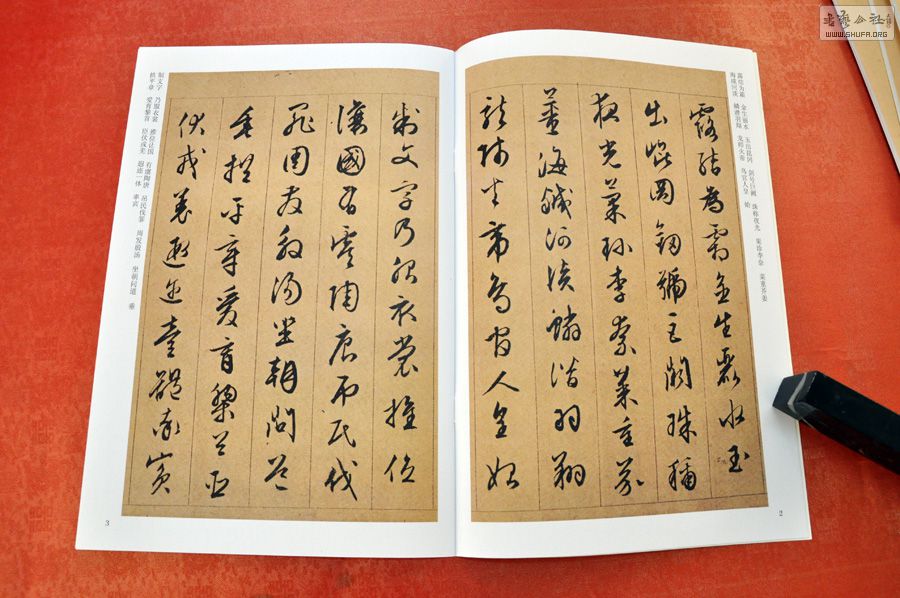 書藝公社
WWW.SHUFA.ORG
露结为霜 金生丽水 玉出昆冈 剑号巨阙 珠称夜光 果珍李奈 菜重芥姜
海咸河淡 鳞潜羽翔 龙师火帝 鸟官人皇 始
露結為霜金生麗水玉
出崐岡劒號巨闕珠稱
夜光菓珎李柰菜重芥
薑海鹹河淡鱗潜羽翔
龍師火帝鳥官人皇始
2
制文字乃服衣裳推位
讓國有虞陶唐吊民伐
罪周發殷湯坐朝問道
垂拱平章愛育黎首臣
伏戎羌遐迩壹體率賓
制文字 乃服衣裳 推位让国 有虞陶唐 吊民伐罪 周发殷汤 坐朝问道 垂
拱平章 爱育黎首 臣伏戎羌 遐迩一体 率宾
3